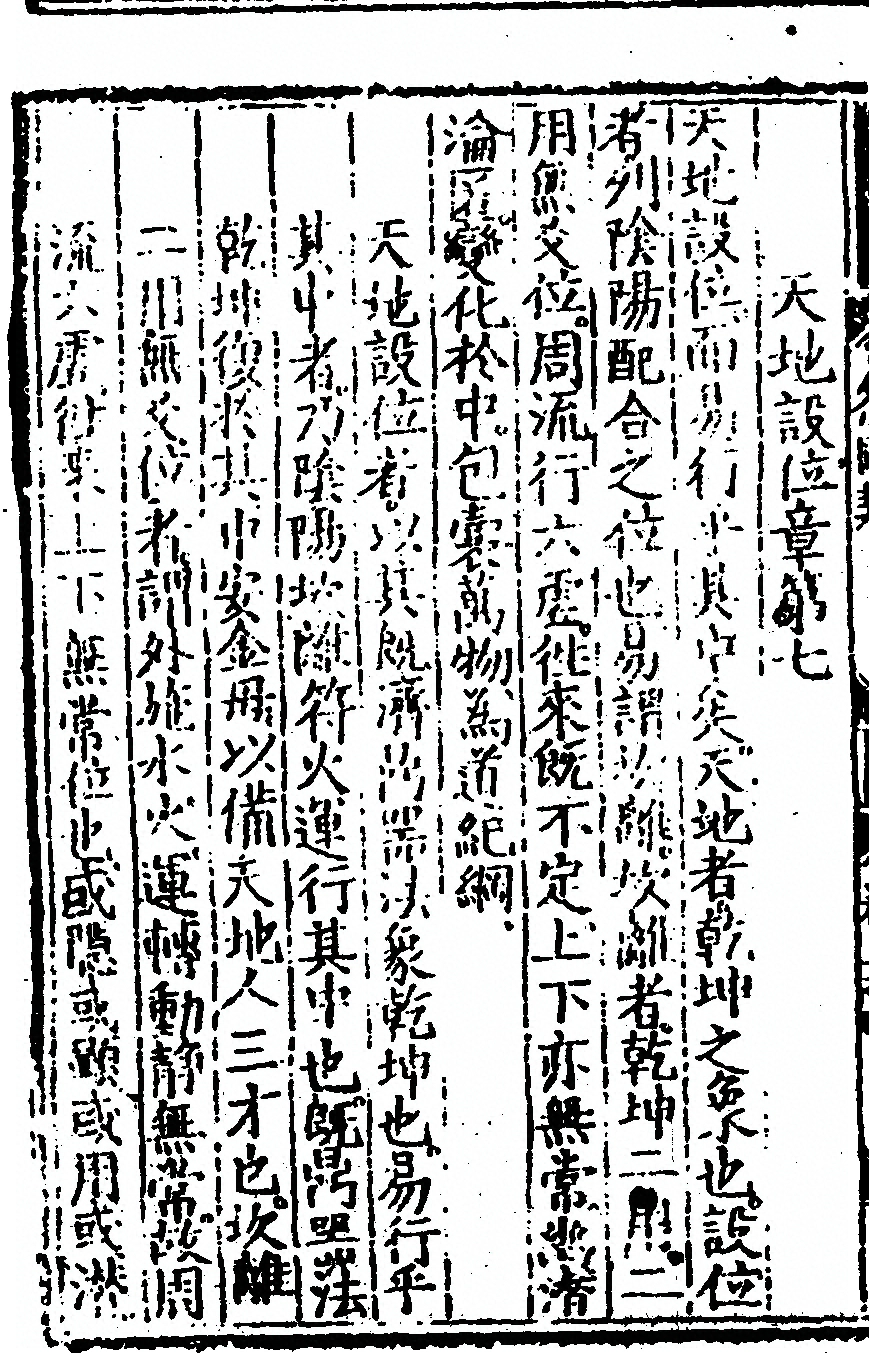 天地設位章第七
天地設位而易行乎其中矣天地者乾坤之象也設位
者列陰陽配合之位也易謂坎離坎離者乾坤二用二
用無爻位周流行六虛徃來旣不定上下亦無常幽潛
淪匿變化於中包囊萬物為道紀綱
天地設位者以其既濟鼎器法象乾坤也易行乎
其中者乃陰陽坎離符火運行其中也旣鼎器法
乾坤復於其中安金母以備天地人三才也坎離
二用無爻位者謂外施水火運轉動静無常故周
流六虛徃來上下無常位也或隱或顯或用或潛